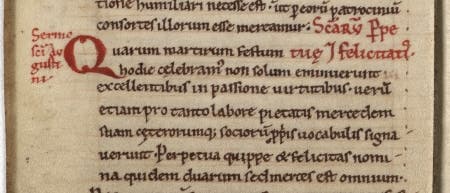 tione humiliari necesse est · ut peorũ patrociniũ
consortes illorum esse mereamur · Scãrũ Ppe
Sermo
sc̃i Au
gusti
ni ·
Quarum martirum festum tuę ⁊ felicitatis
hodie celebram᷒ non solum eminerunt
excellentibus in passione uirtutibus · uerũ
etiam pro tanto labore pietatis mercedem
suam cęterorumq; sociorũ ꝓpriis uocabulis signa
uerunt · Perpetua quippe & felicitas nomi
na quidem duarum sed merces est omnium ·